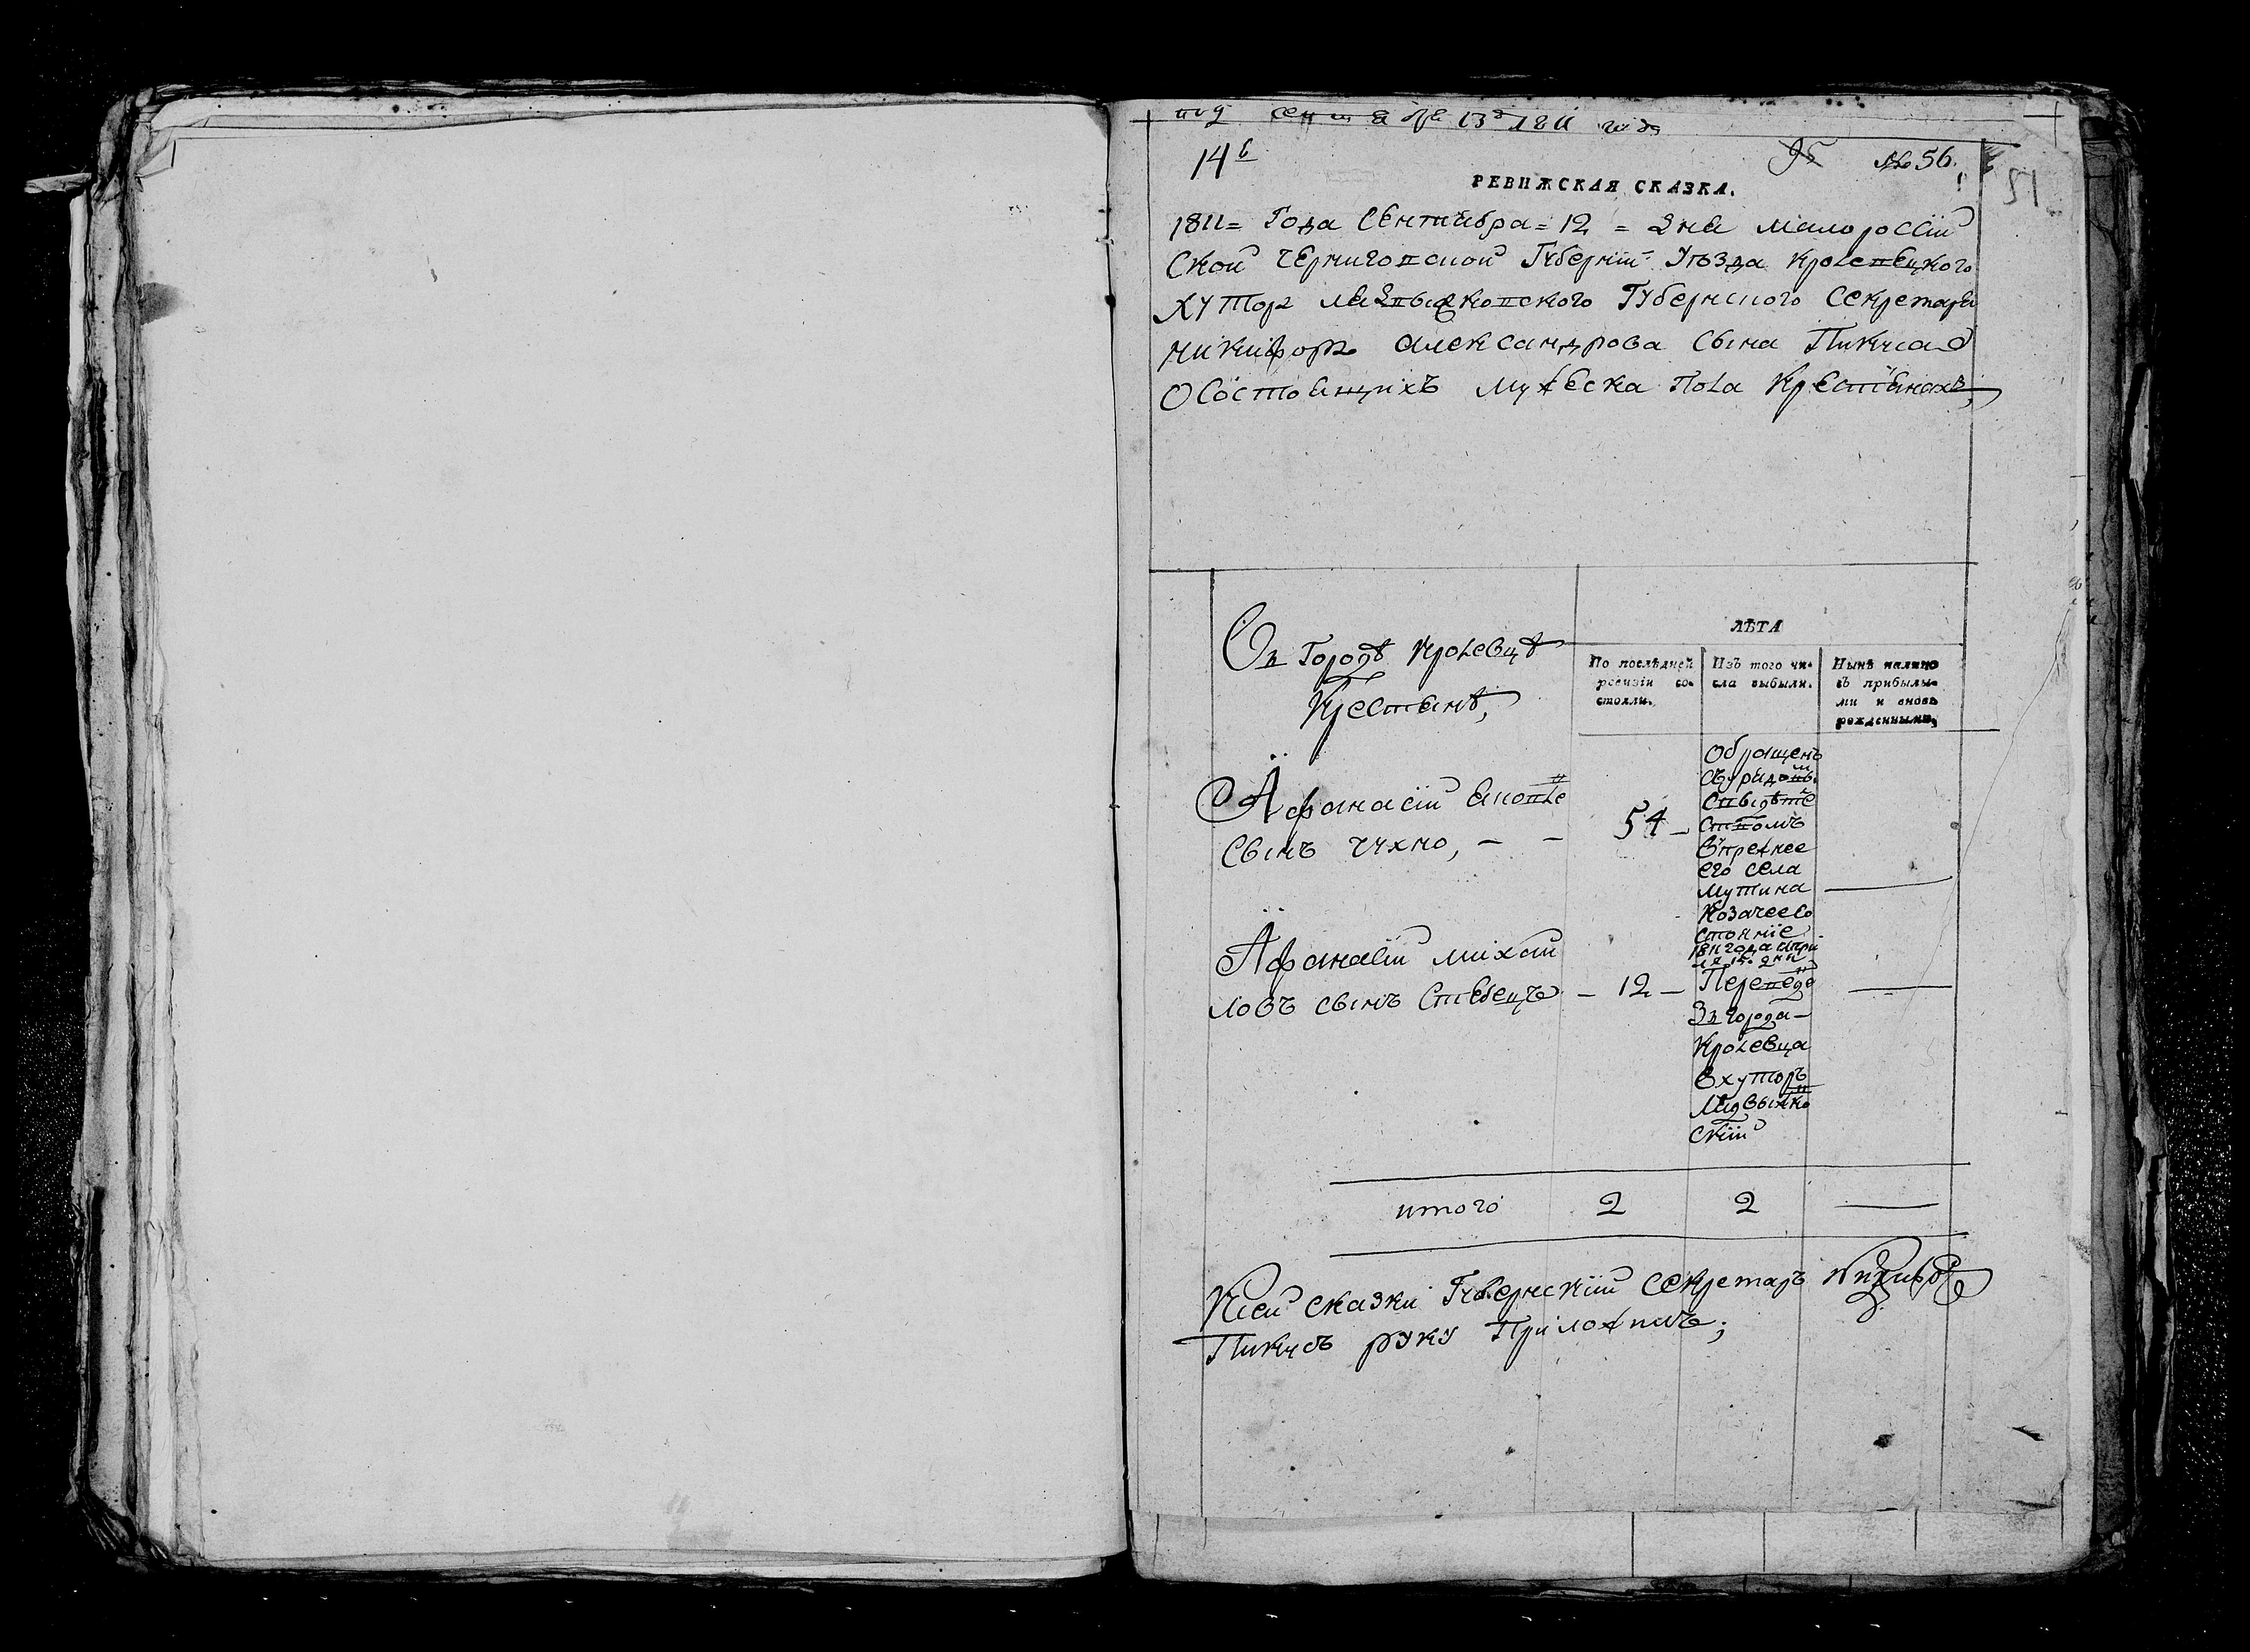 под сентября 13д 1811 года
14й 95 № 56.
51
РЕВИЖСКАЯ СКАЗКА.
1811= Года Сентября = 12 = дня малороссій
ской черниговской Губерніи Уѣзда кролевецкого
хутор Губернского Секретаря
никифора александрова сына Пикуса
О состоящихъ мужеска пола Крестянахъ,
Въ Городѣ Кролевцѣ
Крестянѣ,
ЛѢТА
По послѣдней
ревизіи со-
стояли.
Изъ того чи-
сла выбыли.
Нынѣ налицо
съ прибылы-
ми и вновь
рожденными,
Афанасій яковле
сынъ чухно, – – 54 –
Обращенъ
Сурядовы
Свыдѣте
ством
Впрежнее
его села
мутина
Козачее со
стояние
1811 года апри
ля 15. дня
Афанасій михай
ловъ сынъ Стебецъ – 12 –
Переведе
Зъ города –
Кролевца
В хуторъ
Мядвыжко
скій
итого 2 2 —
К сей сказки Губернскій секретарь Никифор
Пикусъ руку Приложилъ;